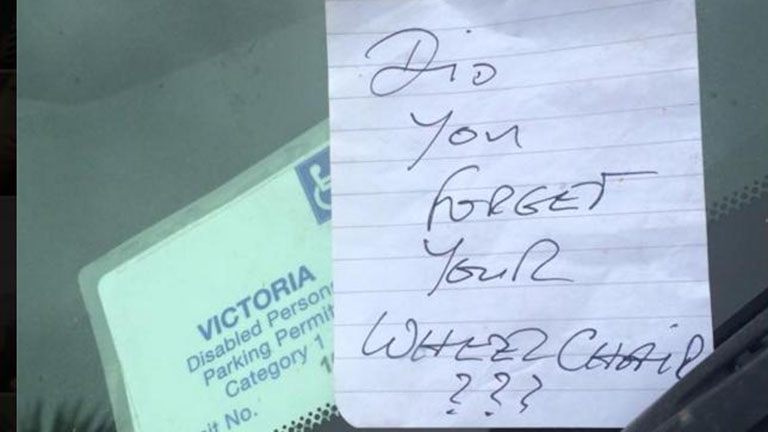 DID
YOU
FORGET
YOUR
WHEELCHAIR
???
VICTORIA
Disabled Person
Parking Permit
Category 1
it No.